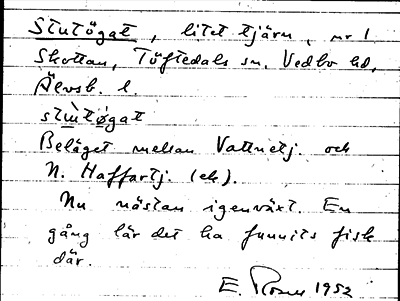 Stutögat, litet tjärn, nr 1
Skottan, Töftedals sn, Vedbo hd,
Älvsb. l.
stùtøgat
Beläget mellan Vattnetj. och
N. Haffartj. (ek).
Nu nästan igenväxt. En
gång lär det ha funnits fisk
där.
E. 1952